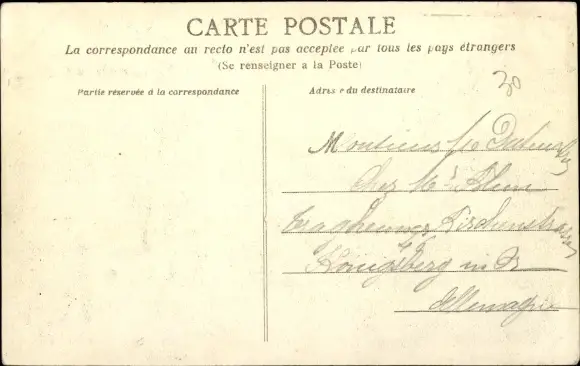 CARTE POSTALE
La correspondance au recto n'est pas acceptée par tous les pays étrangers
(Se renseigner a la Poste)
Partie réservée à la correspondance
Adresse du destinataire
30
Monsieur
Chez Mr Blum
Königsberg in Pr
Allemagne